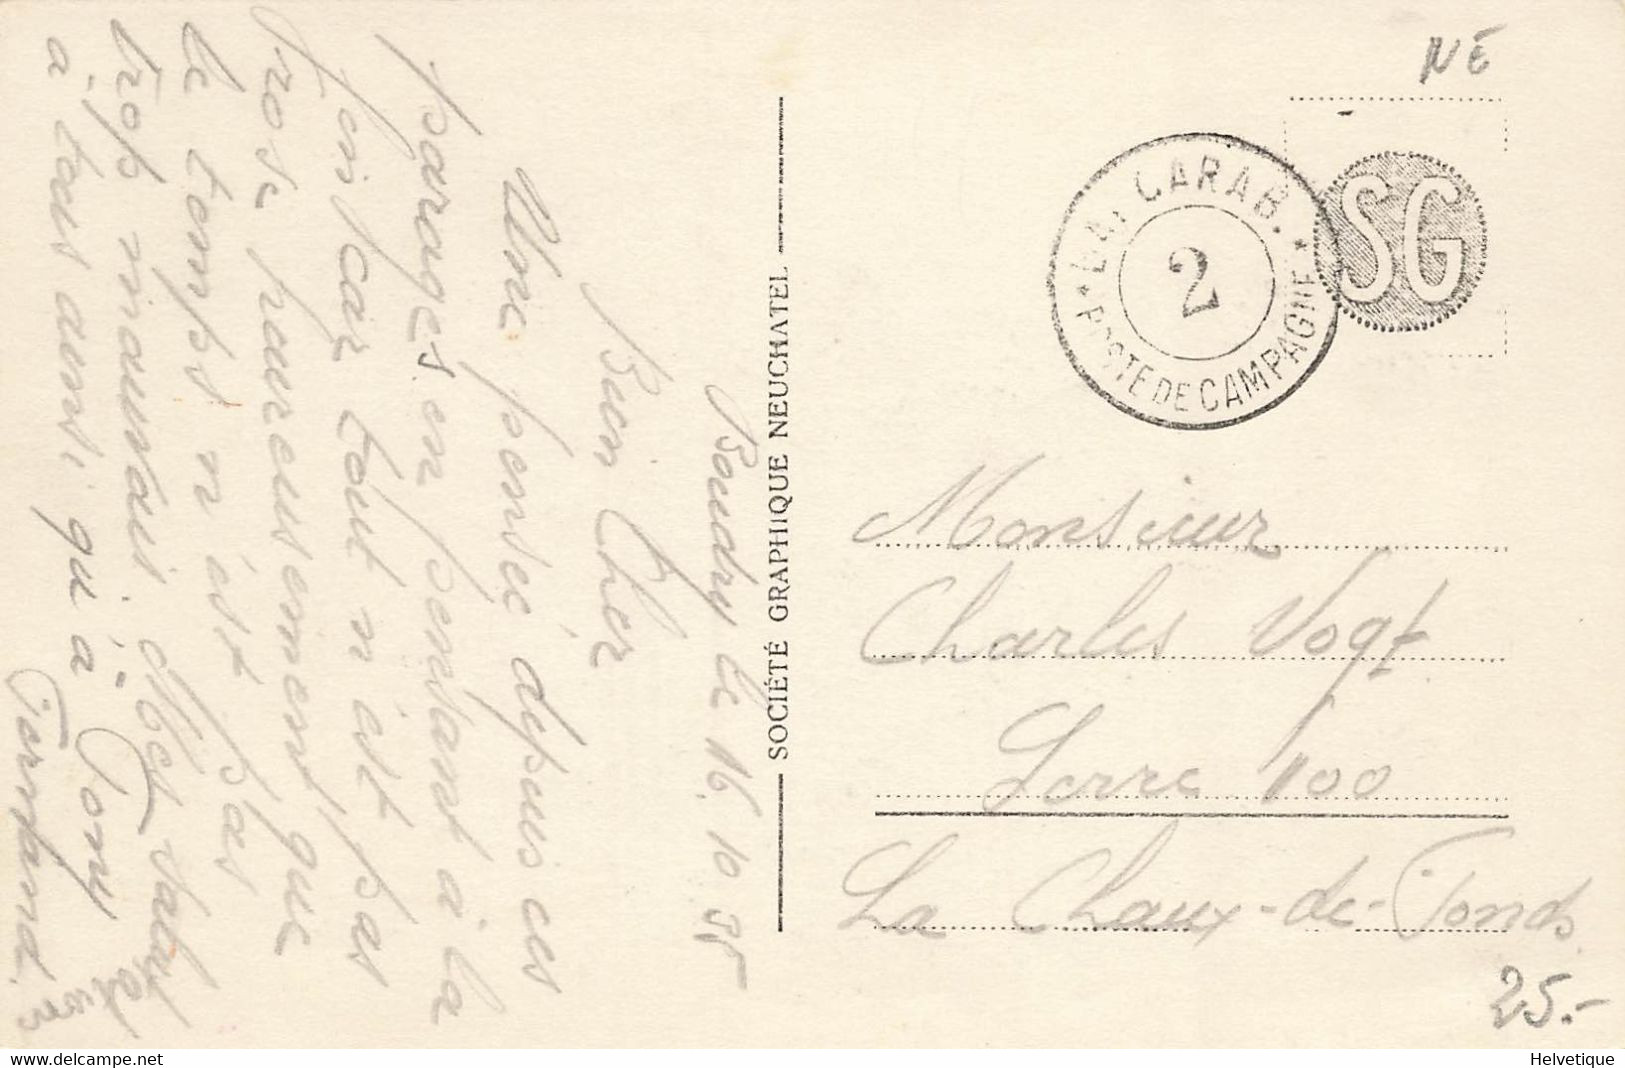 Boudry le 16.10.35
Bien Cher
Une pensée depuis ces
parages en pensant à la
fois car tout n'est pas
rose, heureusement que
le temps n'est pas
trop mauvais. Mes salut
à tous ainsi qu'à Tony
Fernand.
SOCIÉTÉ GRAPHIQUE NEUCHATEL
NE
CARAB.
2
* POSTE DE CAMPAGNE *
SG
Monsieur
Charles Vogt
Serre 100
La Chaux-de-Fonds.
25.-
delcampe.net
Helvetique